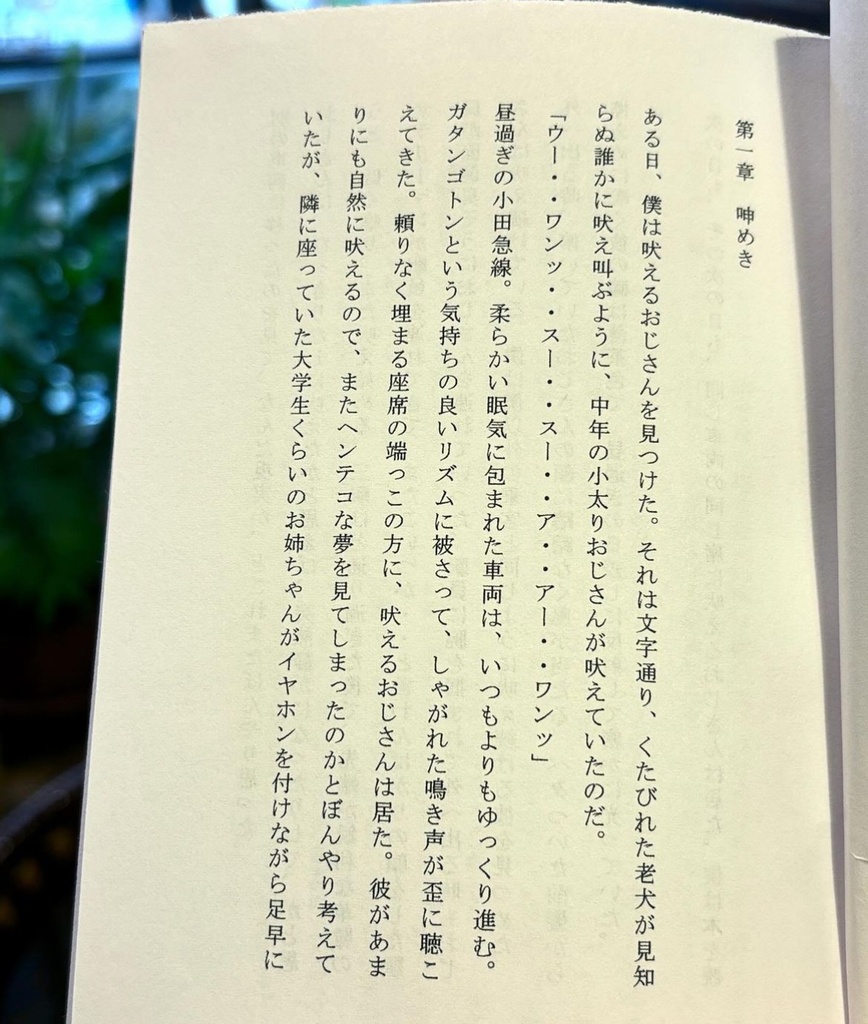 第一章　呻めき
ある日、僕は吠えるおじさんを見つけた。それは文字通り、くたびれた老犬が見知
らぬ誰かに吠え叫ぶように、中年の小太りおじさんが吠えていたのだ。
「ウー・・ワンッ・・スー・・スー・・ア・・アー・・ワンッ」
昼過ぎの小田急線。柔らかい眠気に包まれた車両は、いつもよりもゆっくり進む。
ガタンゴトンという気持ちの良いリズムに被さって、しゃがれた鳴き声が歪に聴こ
えてきた。頼りなく埋まる座席の端っこの方に、吠えるおじさんは居た。彼があま
りにも自然に吠えるので、またヘンテコな夢を見てしまったのかとぼんやり考えて
いたが、隣に座っていた大学生くらいのお姉ちゃんがイヤホンを付けながら足早に